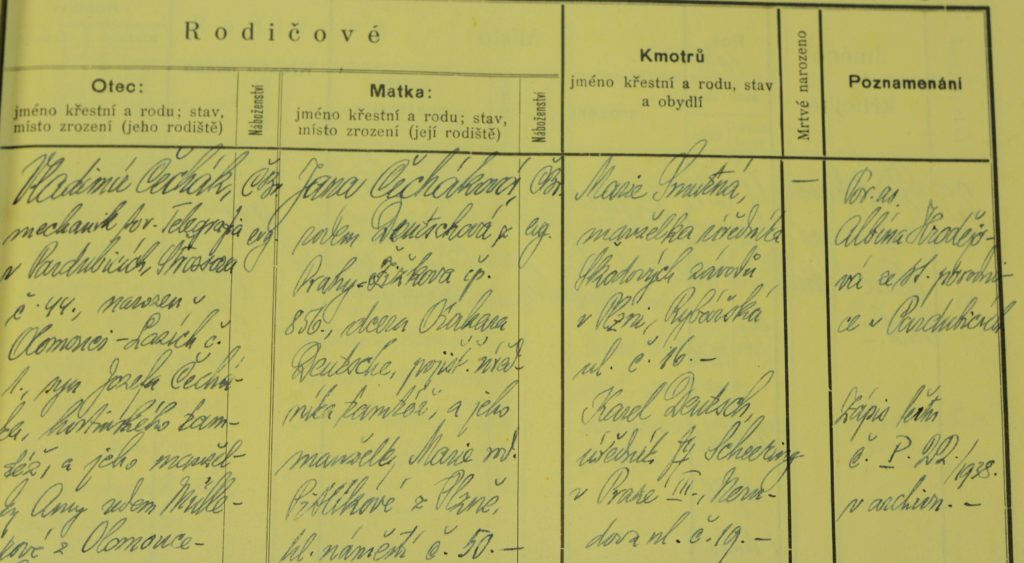 Rodičové
Otec:
jméno křestní a rodu; stav,
místo zrození (jeho rodiště)
Náboženství
Matka:
jméno křestní a rodu; stav,
místo zrození (její rodiště)
Náboženství
Kmotrů
jméno křestní a rodu, stav
a obydlí
Mrtvé narozeno
Poznamenání
Vladimír Čechák,
mechanik tov. Telegrafia
v Pardubicích,
č. 44., narozen v
Olomouci-Lazích č.
1., syn Josefa Čechá-
ka, hostinského tam-
též, a jeho manžel-
ky Anny rodem Mülle-
rové z Olomouce-
evg.
Jana Čecháková,
rodem Deutschová z
Prahy-Žižkova čp.
856., dcera Otakara
Deutsche, pojišť. úřed-
níka tamtéž, a jeho
manželky Marie roz.
z Plzně,
hl. náměstí č. 50.-
evg.
Marie Smutná,
manželka úředníka
Škodových závodů
v Plzni, Rybářská
ul. č. 16.-
Karel Deutsch,
úředník fy Scheering
v Praze III., Neru-
dova ul. č. 19.-
—
Por. as.
Albína Hrodějo-
vá, porodni-
ce v Pardubicích
Zápis křtu
č. P. 22/1938.
v archivu.-